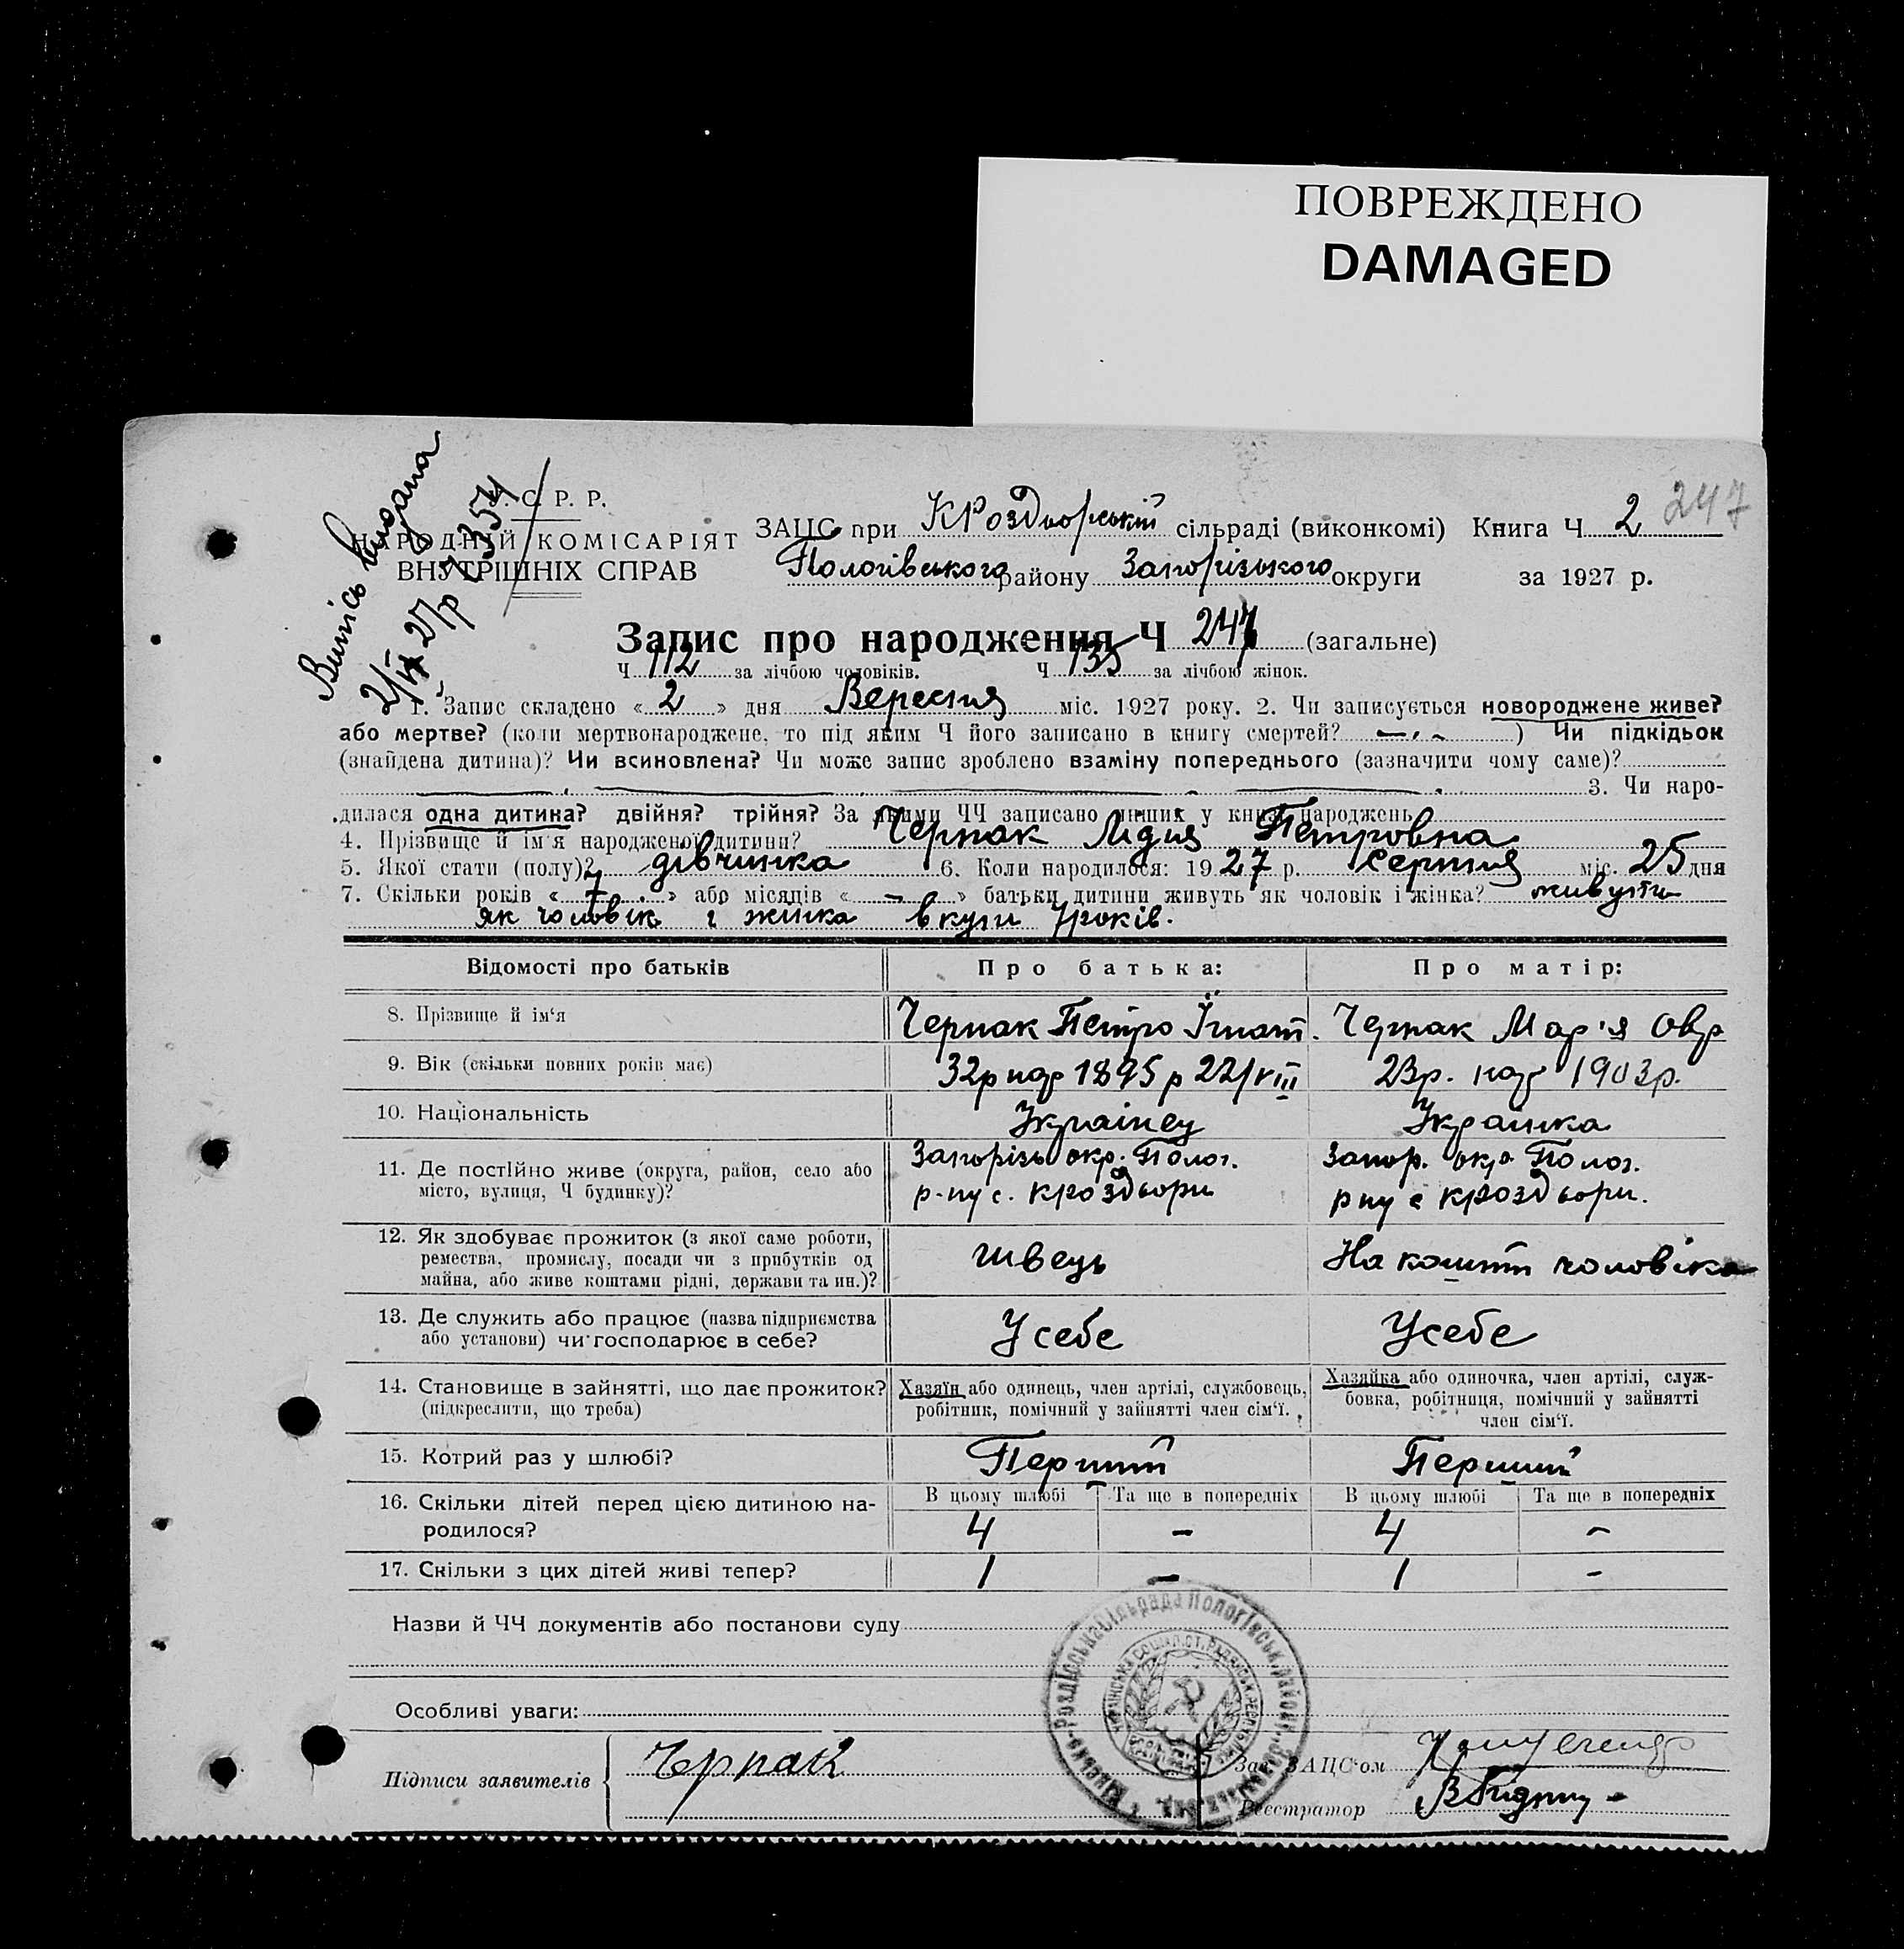 ПОВРЕЖДЕНО
DAMAGED
247
Випись видана
2/ІХ 27р
С. Р. Р.
НАРОДНІЙ КОМІСАРІЯТ
ВНУТРІШНІХ СПРАВ
ЗАЦС при КРоздорській сільраді (виконкомі) Книга Ч 2
Пологівського району Запорізького округи за 1927 р.
Запис про народження Ч 247 (загальне)
Ч 112 за лічбою чоловіків. Ч 135 за лічбою жінок.
1. Запис складено « 2 » дня Вересня міс. 1927 року. 2. Чи записується новороджене живе?
або мертве? (коли мертвонароджене, то під яким Ч його записано в книгу смертей? ) Чи підкідьок
(знайдена дитина)? Чи всиновлена? Чи може запис зроблено взаміну попереднього (зазначити чому саме)?
3. Чи наро-
дилася одна дитина? двійня? трійня? За якими ЧЧ записано инших у книзі народжень
4. Прізвище й ім'я народженої дитини? Черпак Лідия Петровна
5. Якої статі (полу)? дівчинка 6. Коли народилося: 1927 р. Серпня міс. 25 дня
7. Скільки років « 7 » або місяців « - » батьки дитини живуть як чоловік і жінка? живуть
як чоловік і жинка вкупи 7років.
Відомості про батьків Про батька: Про матір:
8. Прізвище й ім‘я Черпак Петро Їгнат. Черпак Мар'я Овр
9. Вік (скільки повних років має) 32р нар 1895 р 22/VIII 23р. нар 1903р.
10. Національність Українец Українка
11. Де постійно живе (округа, район, село або Запорізь окр. Полог. Запор. окр. Полог.
місто, вулиця, Ч будинку)? р-ну с. Кроздори р ну с Кроздори.
12. Як здобуває прожиток (з якої саме роботи,
ремества, промислу, посади чи з прибутків од швець На кошт чоловіка
майна, або живе коштами рідні, держави та ин.)?
13. Де служить або працює (назва підприємства У себе У себе
або установи) чи господарює в себе?
14. Становище в зайнятті, що дає прожиток? Хазяїн або одинець, член артілі, службовець, Хазяйка або одиночка, член артілі, служ-
(підкреслити, що треба) робітник, помічний у зайнятті член сім‘ї. бовка, робітниця, помічний у зайнятті
член сім‘ї.
15. Котрий раз у шлюбі? Перший Перший
16. Скільки дітей перед цією дитиною на- В цьому шлюбі Та ще в попередніх В цьому шлюбі Та ще в попередніх
родилося? 4 - 4 -
17. Скільки з цих дітей живі тепер? 1 - 1 -
Назви й ЧЧ документів або постанови суду
Особливі уваги:
Підписи заявителів Черпак Зав. ЗАЦС‘ом
Реєстратор